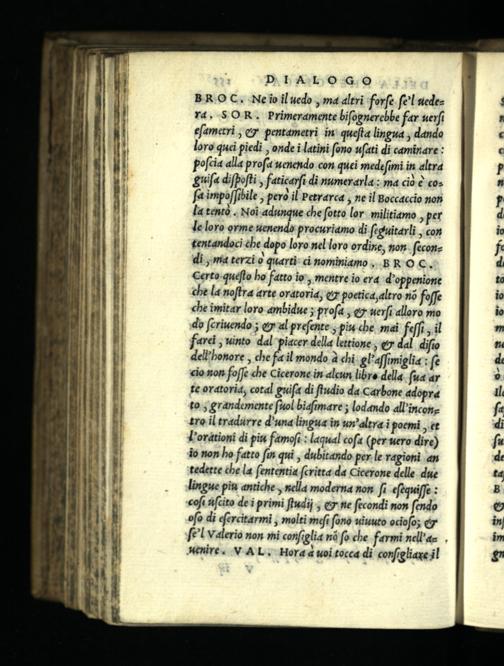 DIALOGO
BROC. Ne io il uedo, ma altri forse se'l uede-
ra. SOR. Primeramente bisognerebbe far uersi
esametri, & pentametri in questa lingua, dando
loro quei piedi, onde i latini sono usati di caminare:
poscia alla prosa uenendo con quei medesimi in altra
guisa disposti, faticarsi di numerarla: ma ciò è co-
sa impossibile, però il Petrarca, ne il Boccaccio non
la tentò. Noi adunque che sotto lor militiamo, per
le loro orme uenendo procuriamo di seguitarli, con
tentandoci che dopo loro nel loro ordine, non secon-
di, ma terzi ò quarti ci nominiamo. BROC.
Certo questo ho fatto io, mentre io era d'oppenione
che la nostra arte oratoria, & poetica, altro nõ fosse
che imitar loro ambidue; prosa, & uersi alloro mo
do scriuendo; & al presente, piu che mai fessi, il
farei, uinto dal piacer della lettione, & dal disio
dell'honore, che fa il mondo à chi gl'assimiglia: se
cio non fosse che Cicerone in alcun libro della sua ar
te oratoria, cotal guisa di studio da Carbone adopra
to, grandemente suol biasimare; lodando all'incon-
tro il tradurre d'una lingua in un'altra i poemi, et
l'orationi di piu famosi: laqual cosa (per uero dire)
io non ho fatto sin qui, dubitando per le ragioni an
tedette che la sententia scritta da Cicerone delle due
lingue piu antiche, nella moderna non si esequisse:
cosi uscito de i primi studij, & ne secondi non sendo
oso di esercitarmi, molti mesi sono uiuuto ocioso; &
se'l Valerio non mi consiglia nõ so che farmi nell'a-
uenire. VAL. Hora à uoi tocca di consigliare il